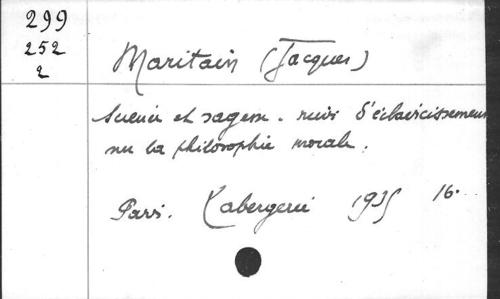 299
252
2
Maritain (Jacques)
Science et sagesse. suivi d'éclaircissement
sur la philosophie morale.
Paris. Labergerie 1935 16.